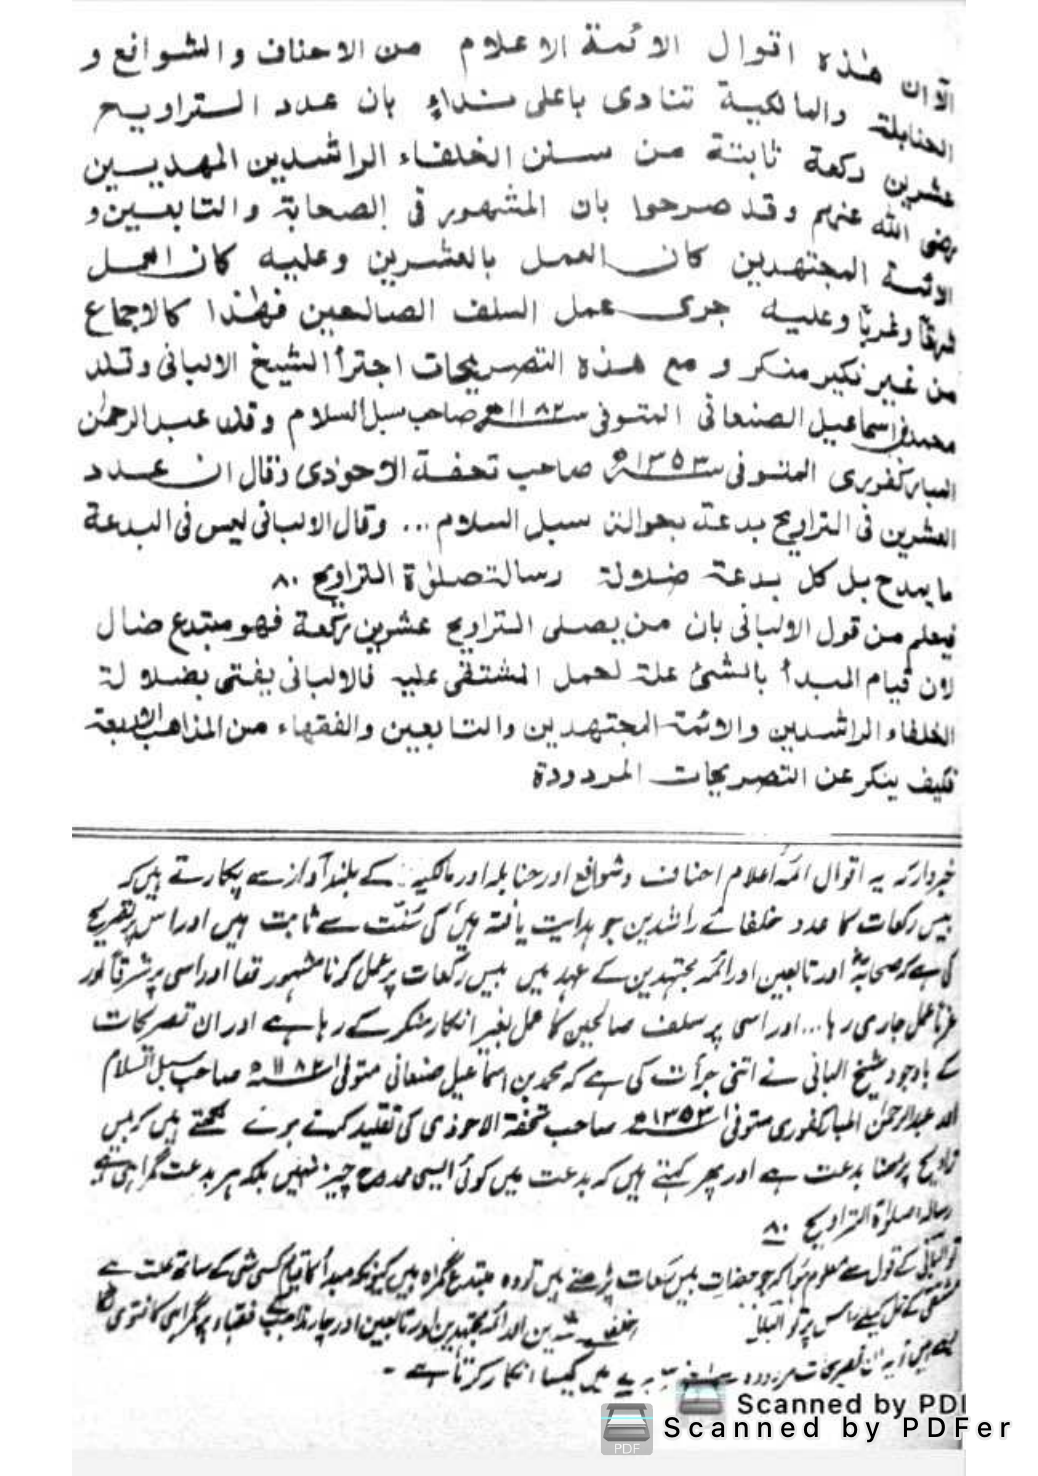 الآن هذه اقوال الائمة الاعلام من الاحناف والشوافع و
الحنابلة والمالكية تنادى باعلى نداء بان عدد التراويح
عشرين ركعة ثابتة من سنن الخلفاء الراشدين المهديين
رضى الله عنهم وقد صرحوا بان المشهور فى الصحابة والتابعين و
الائمة المجتهدين كان العمل بالعشرين وعليه كان العمل
شرقا وغربا وعليه جرى عمل السلف الصالحين فهذا كالاجماع
من غير نكير منكر و مع هذه التصريحات اجترأ الشيخ الالبانى وقلد
محمد بن اسماعيل الصنعانى المتوفى سنة ١١٨٢ھ صاحب سبل السلام وقلد عبد الرحمٰن
المباركفورى المتوفى سنة ١٣٥٣ھ صاحب تحفة الاحوذى وقال ان عدد
العشرين فى التراويح بدعة بحوالة سبل السلام ... وقال الالبانى ليس فى البدعة
ما يمدح بل كل بدعة ضلالة رسالة صلوٰة التراويح ٨٠
فيعلم من قول الالبانى بان من يصلى التراويح عشرين ركعة فهو مبتدع ضال
لان قيام المبدأ بالشئ علة لحمل المشتق عليه فالالبانى يفتى بضلالة
الخلفاء الراشدين والائمة المجتهدين والتابعين والفقهاء من المذاهب
فكيف ينكر عن التصريحات المردودة
خبردار کہ یہ اقوال ائمہ اعلام احناف وشوافع اور حنابلہ اور مالکیہ کے بلند آواز سے پکارتے ہیں کہ
بیس رکعات کا عدد خلفائے راشدین جو ہدایت یافتہ ہیں کی سُنّت سے ثابت ہیں اور اس پر تصریح
کی ہے کہ صحابہؓ اور تابعین اور ائمہ مجتہدین کے عہد میں بیس رکعات پر عمل کرنا مشہور تھا اور اسی پر شرقاً اور
غرباً عمل جاری رہا... اور اسی پر سلف صالحین کا عمل بغیر انکار منکر کے رہا ہے اور ان تصریحات
کے باوجود شیخ البانی نے اتنی جرأت کی ہے کہ محمد بن اسماعیل صنعانی متوفی ١١٨٢ھ صاحب سبل السلام
اور عبدالرحمٰن المبارکفوری متوفی ١٣٥٣ھ صاحب تحفۃ الاحوذی کی تقلید کرتے ہوئے لکھتے ہیں کہ بیس
تراویح پڑھنا بدعت ہے اور پھر کہتے ہیں کہ بدعت میں کوئی ایسی ممدوح چیز نہیں بلکہ ہر بدعت گمراہی ہے
رسالہ صلوٰۃ التراویح ٨٠
تو البانی کے قول سے معلوم ہوا کہ جو حضرات بیس رکعات پڑھتے ہیں تو وہ مبتدع گمراہ ہیں کیونکہ مبدأ کا قیام کسی شی کے ساتھ علت ہے
مشتق کے حمل کیلئے اس پر تو البانی راشدین اور ائمہ مجتہدین اور تابعین اور چار مذاہب کے فقہاء پر گمراہی کا فتویٰ لگا
تصریحات مردودہ سے میں کیسا انکار کرتا ہے ۔
Scanned by PD
Scanned by PDFer
PDF